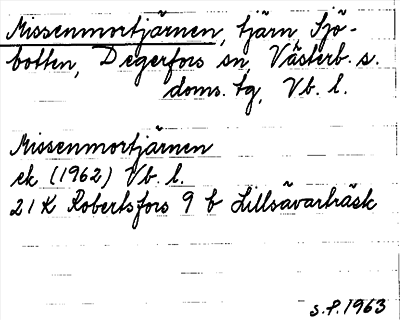 Missenmortjärnen, tjärn Sjö-
botten, Degerfors sn, Västerb. s.
doms. tg, Vb. l.
Missenmortjärnen
ek (1962) Vb. l.
21 K Robertsfors 9 b Lillsävarträsk
S.P. 1963